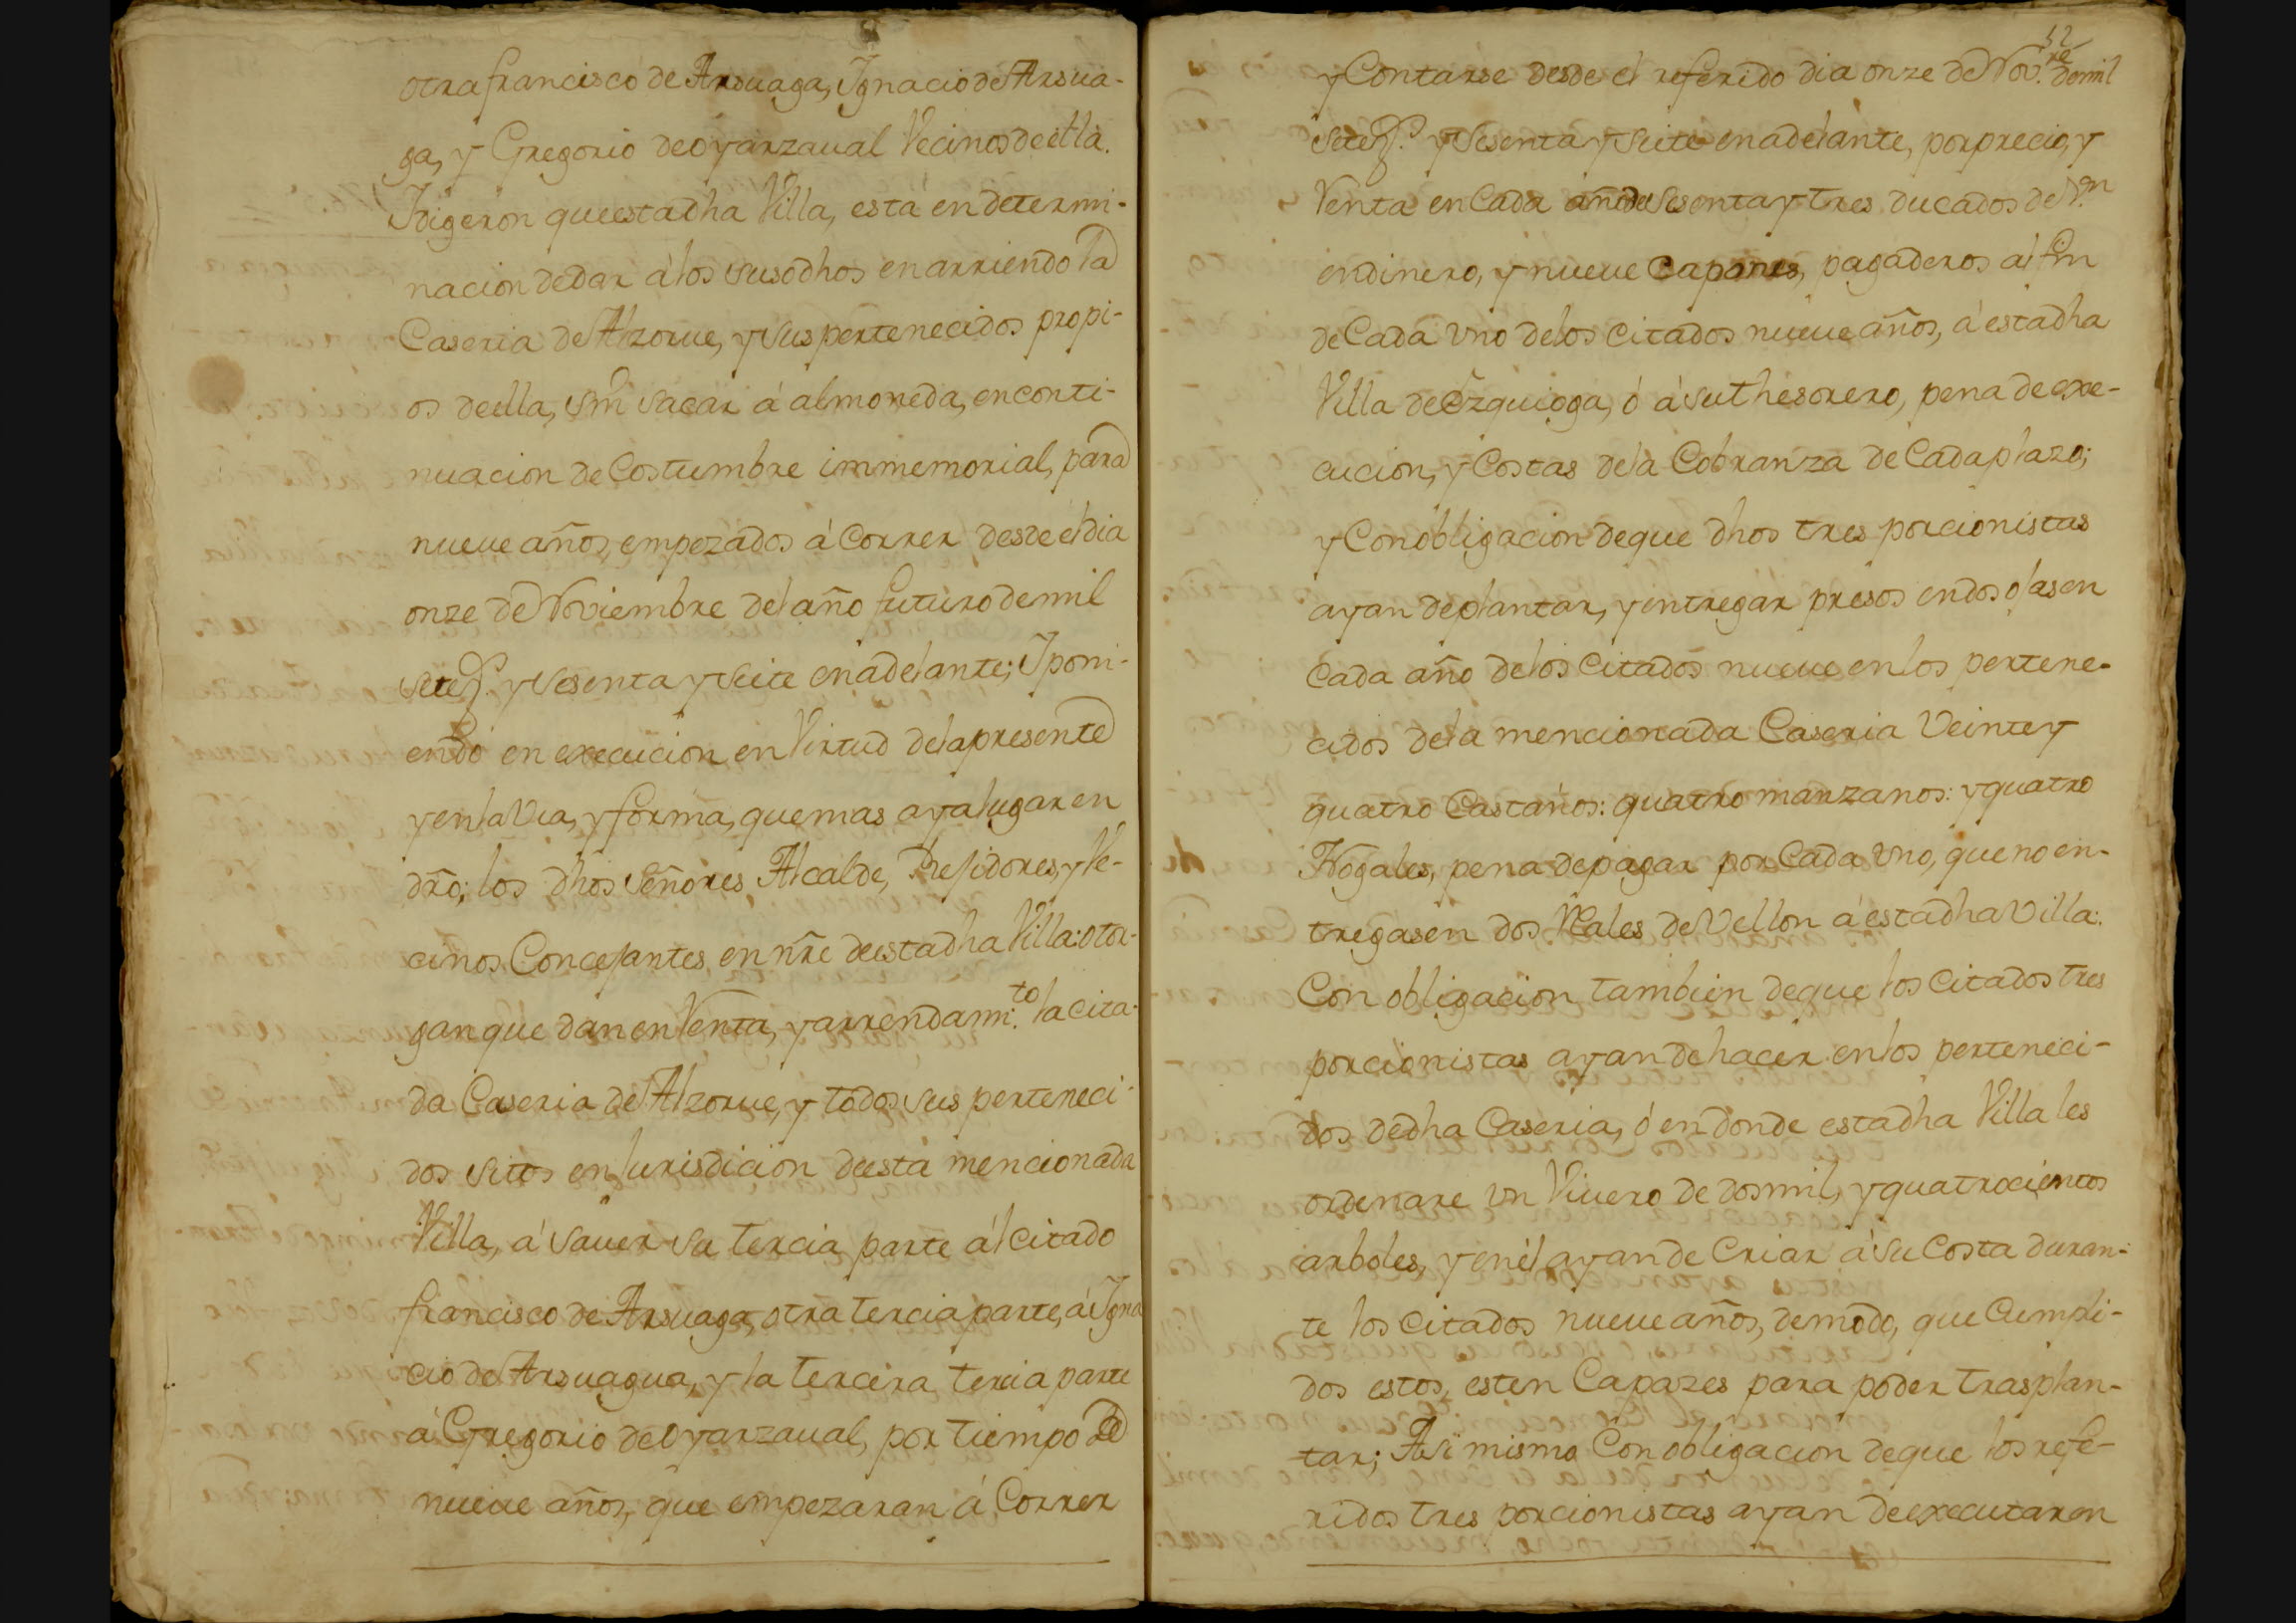 otra francisco de Arsuaga, Ignacio de Arsua-
ga, y Gregorio de oyarzaual Vecinos de ella.
I digeron que esta dha Villa, está en determi-
nacion de dar á los susodhos en arriendo la
Caseria de Alzorue, y sus pertenecidos propi-
os de ella, sin sacar á almoneda, en conti-
nuacion de Costumbre immemorial, para
nueue años, empezados á Correr desde el dia
onze de Noviembre del año futuro de mil
setes. y sesenta y seite en adelante; I poni-
endo en execucion en Virtud de la presente
y en la Via, y forma, que mas aya lugar en
dro; los dhos Señores Alcalde, Rejidores, y Ve-
cinos Concejantes, en nre de esta dha Villa: otor-
gan que dan en Venta, y arrendami.to la cita-
da Caseria de Alzorue, y todos sus perteneci-
dos sitos en Jurisdicion de esta mencionada
Villa, á sauer su tercia parte ál citado
francisco de Arsuaga, otra tercia parte, á Igna
cio de Arsuagua, y la tercera tercia parte
á Gregorio de oyarzaual, por tiempo de
nueue años, que empezaran á Correr
52
y Contarse desde el referido dia onze de Nov.re de mil
setes. y sesenta y seite en adelante, por precio, y
Venta en Cada año de sesenta y tres ducados de V.on
en dinero, y nueue Capones, pagaderos al fin
de Cada vno de los citados nueue años, á esta dha
Villa de Ezquioga, ó á su thesorero, pena de exe-
cucion, y Costas de la Cobranza de Cada plazo;
y Con obligacion de que dhos tres porcionistas
ayan de plantar, y entregar presos en dos ojas en
Cada año de los citados nueue en los pertene-
cidos de la mencionada Caseria Veinte y
quatro Castaños: quatro manzanos: y quatro
Nogales, pena de pagar por Cada vno, que no en-
tregasen dos Reales de Vellon á esta dha Villa:
Con obligacion tambien de que los citados tres
porcionistas ayan de hacer en los perteneci-
dos de dha Caseria, ó en donde esta dha Villa les
ordenare vn Viuero de dos mil, y quatrocientos
arboles, y en él ayan de Criar á su Costa duran-
te los citados nueue años, de modo, que Cumpli-
dos estos, esten Capazes para poder trasplan-
tar; Asi mismo Con obligacion de que los refe-
ridos tres porcionistas ayan de executar en